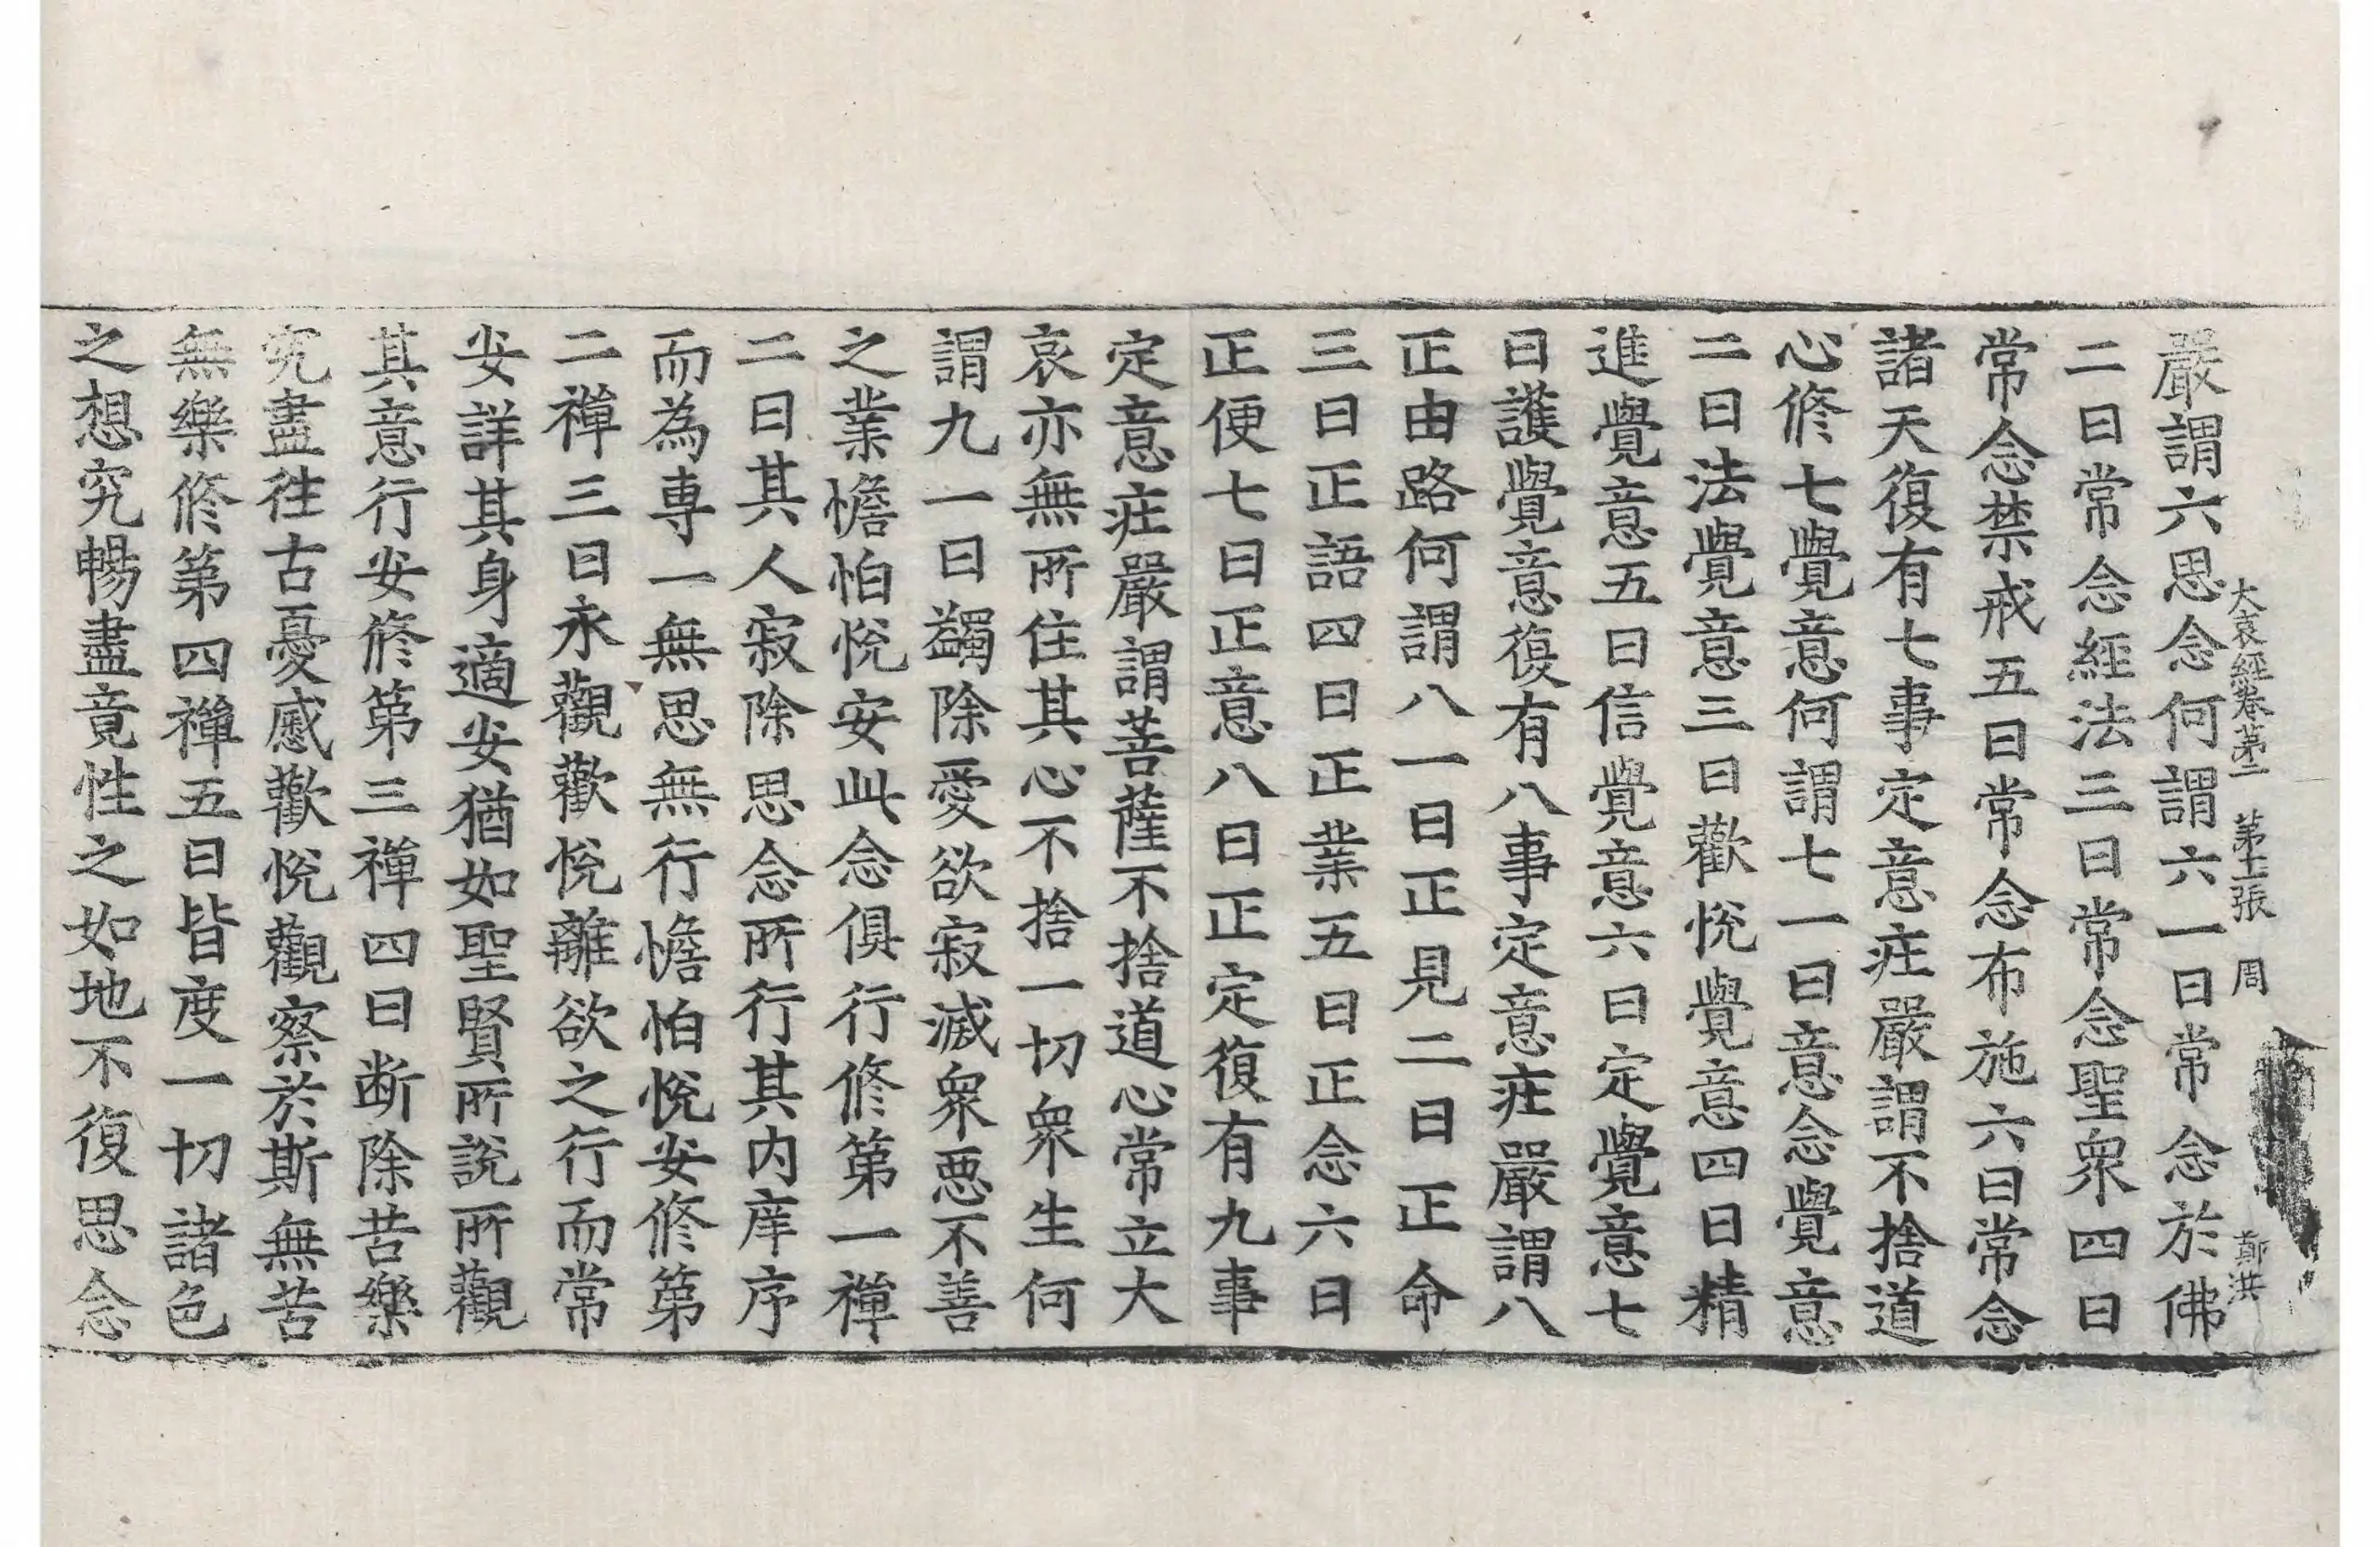 嚴謂六思念何謂六一曰常念於佛
大哀經卷第二　第十二張　周　鄭洪
二曰常念經法三曰常念聖衆四曰
常念禁戒五曰常念布施六曰常念
諸天復有七事定意疰嚴謂不捨道
心修七覺意何謂七一曰意念覺意
二曰法覺意三曰歡悅覺意四曰精
進覺意五曰信覺意六曰定覺意七
曰護覺意復有八事定意疰嚴謂八
正由路何謂八一曰正見二曰正命
三曰正語四曰正業五曰正念六曰
正便七曰正意八曰正定復有九事
定意疰嚴謂菩薩不捨道心常立大
哀亦無所住其心不捨一切衆生何
謂九一曰蠲除愛欲寂滅衆悪不善
之業憺怕悅安此念俱行修第一禪
二曰其人寂除思念所行其内庠序
而為專一無思無行憺怕悅安修第
二禪三曰永觀歡悅離欲之行而常
安詳其身適安猶如聖賢所說所觀
其意行安修第三禪四曰断除苦樂
究盡往古憂慼歡悅觀察於斯無苦
無樂修第四禪五曰皆度一切諸色
之想究暢盡竟性之如地不復思念